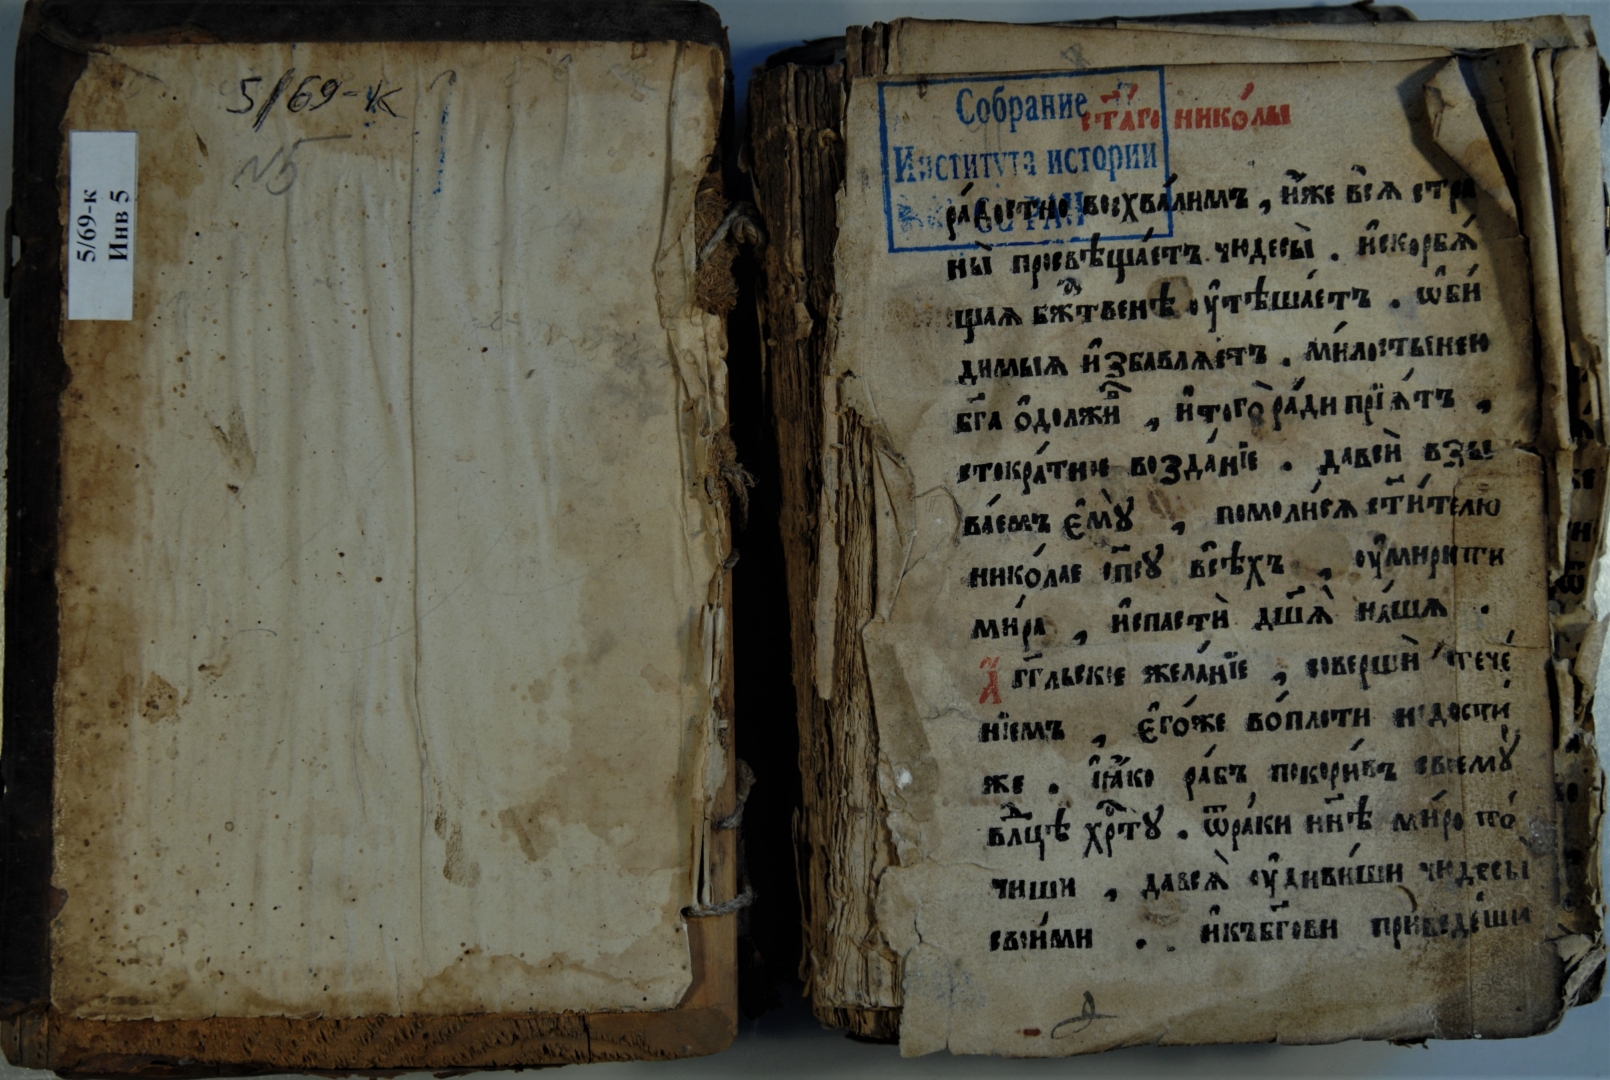 5/69-к
№5
5/69-к
Инв 5
Собрание
Института истории
СО РАН
ст҃а́го нико́лы
ра́достно восхва́лимъ , и҆́же всѧ̀ стра
ны̀ просвѣща́етъ чюдесы̀ . и҆скорбѧ́
щаѧ бж҃твенѣ ᲂу҆тѣша́етъ . ѡ҆би́
димыѧ и҆збавлѧ́етъ . ми́лостынею
бг҃а ѻ҆должи́в , и҆того̀ ра́ди прїѧ́тъ ,
стокра́тное возда́нїе . давсѝ взы
ва́емъ є҆мꙋ̀ , помоли́сѧ ст҃и́телю
нико́лае сп҃сꙋ всѣ́хъ , ᲂу҆мири́ти
ми́ра , и҆спастѝ дш҃ѧ̀ на́шѧ .
А҆́гг҃льское жела́нїе , соверши̏ стече́
нїемъ , є҆го́же во́плоти недости́
же . ꙗ҆́ко ра́бъ покори́въ своемꙋ̀
влⷣцѣ хрⷭ҇тꙋ . ѿра́ки нн҃ѣ ми́ро то́
чиши , давсѧ̀ ᲂу҆диви́ши чюдесы̀
свои́ми . и҆къбг҃ови приведе́ши